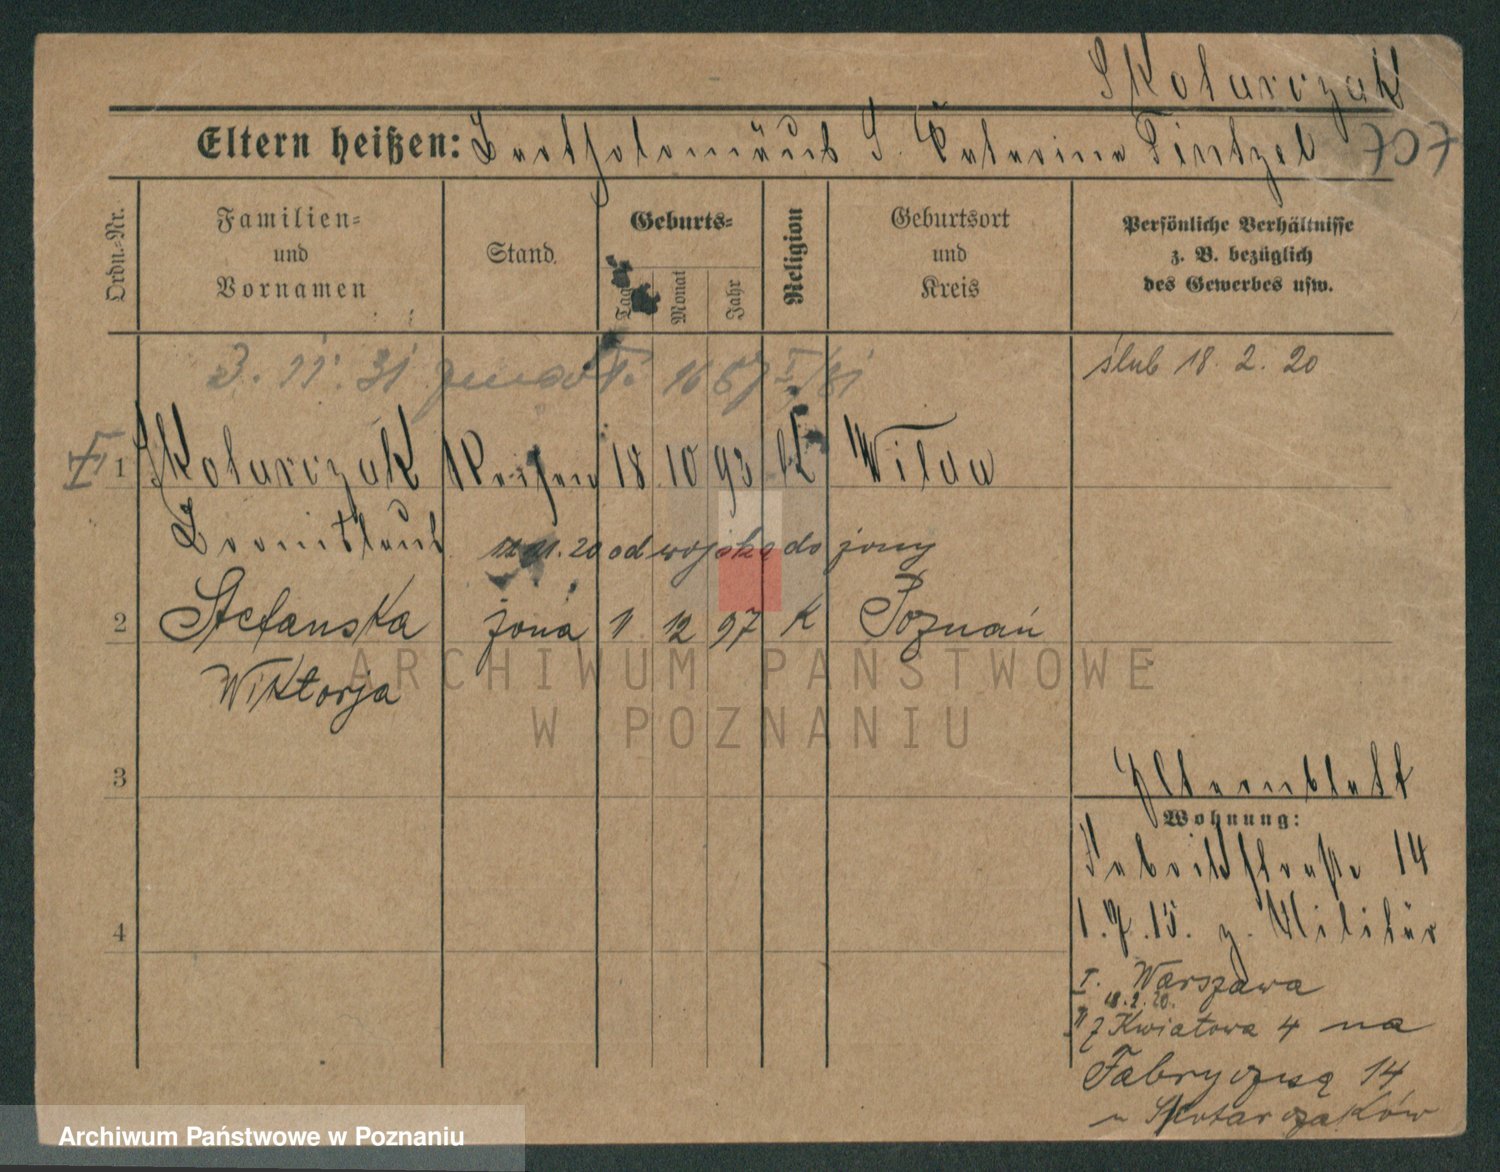 Skotarczak
Eltern heißen: Bartholomäus S. Katarina Pintzel
Ordn.-Nr.
Familien- und Vornamen
Stand.
Geburts-
Tag
Monat
Jahr
Religion
Geburtsort und Kreis
Persönliche Verhältnisse z. B. bezüglich des Gewerbes usw.
3. 11. 31
ślub 18. 2. 20
1 Skotarczak 18 10 93 K Wilda
Bronislaus
20 od wojska do żony
2 Stefanska żona 11 12 97 K Poznań
Wiktorja
3
4
Elternblatt
Wohnung:
Fabrikstraße 14
1. 7. 15. z. Militär
I. Warszawa
18. 2. 20.
II z Kwiatowa 4 na
Fabryczną 14
u Skotarczaków
ARCHIWUM PAŃSTWOWE
W POZNANIU
Archiwum Państwowe w Poznaniu